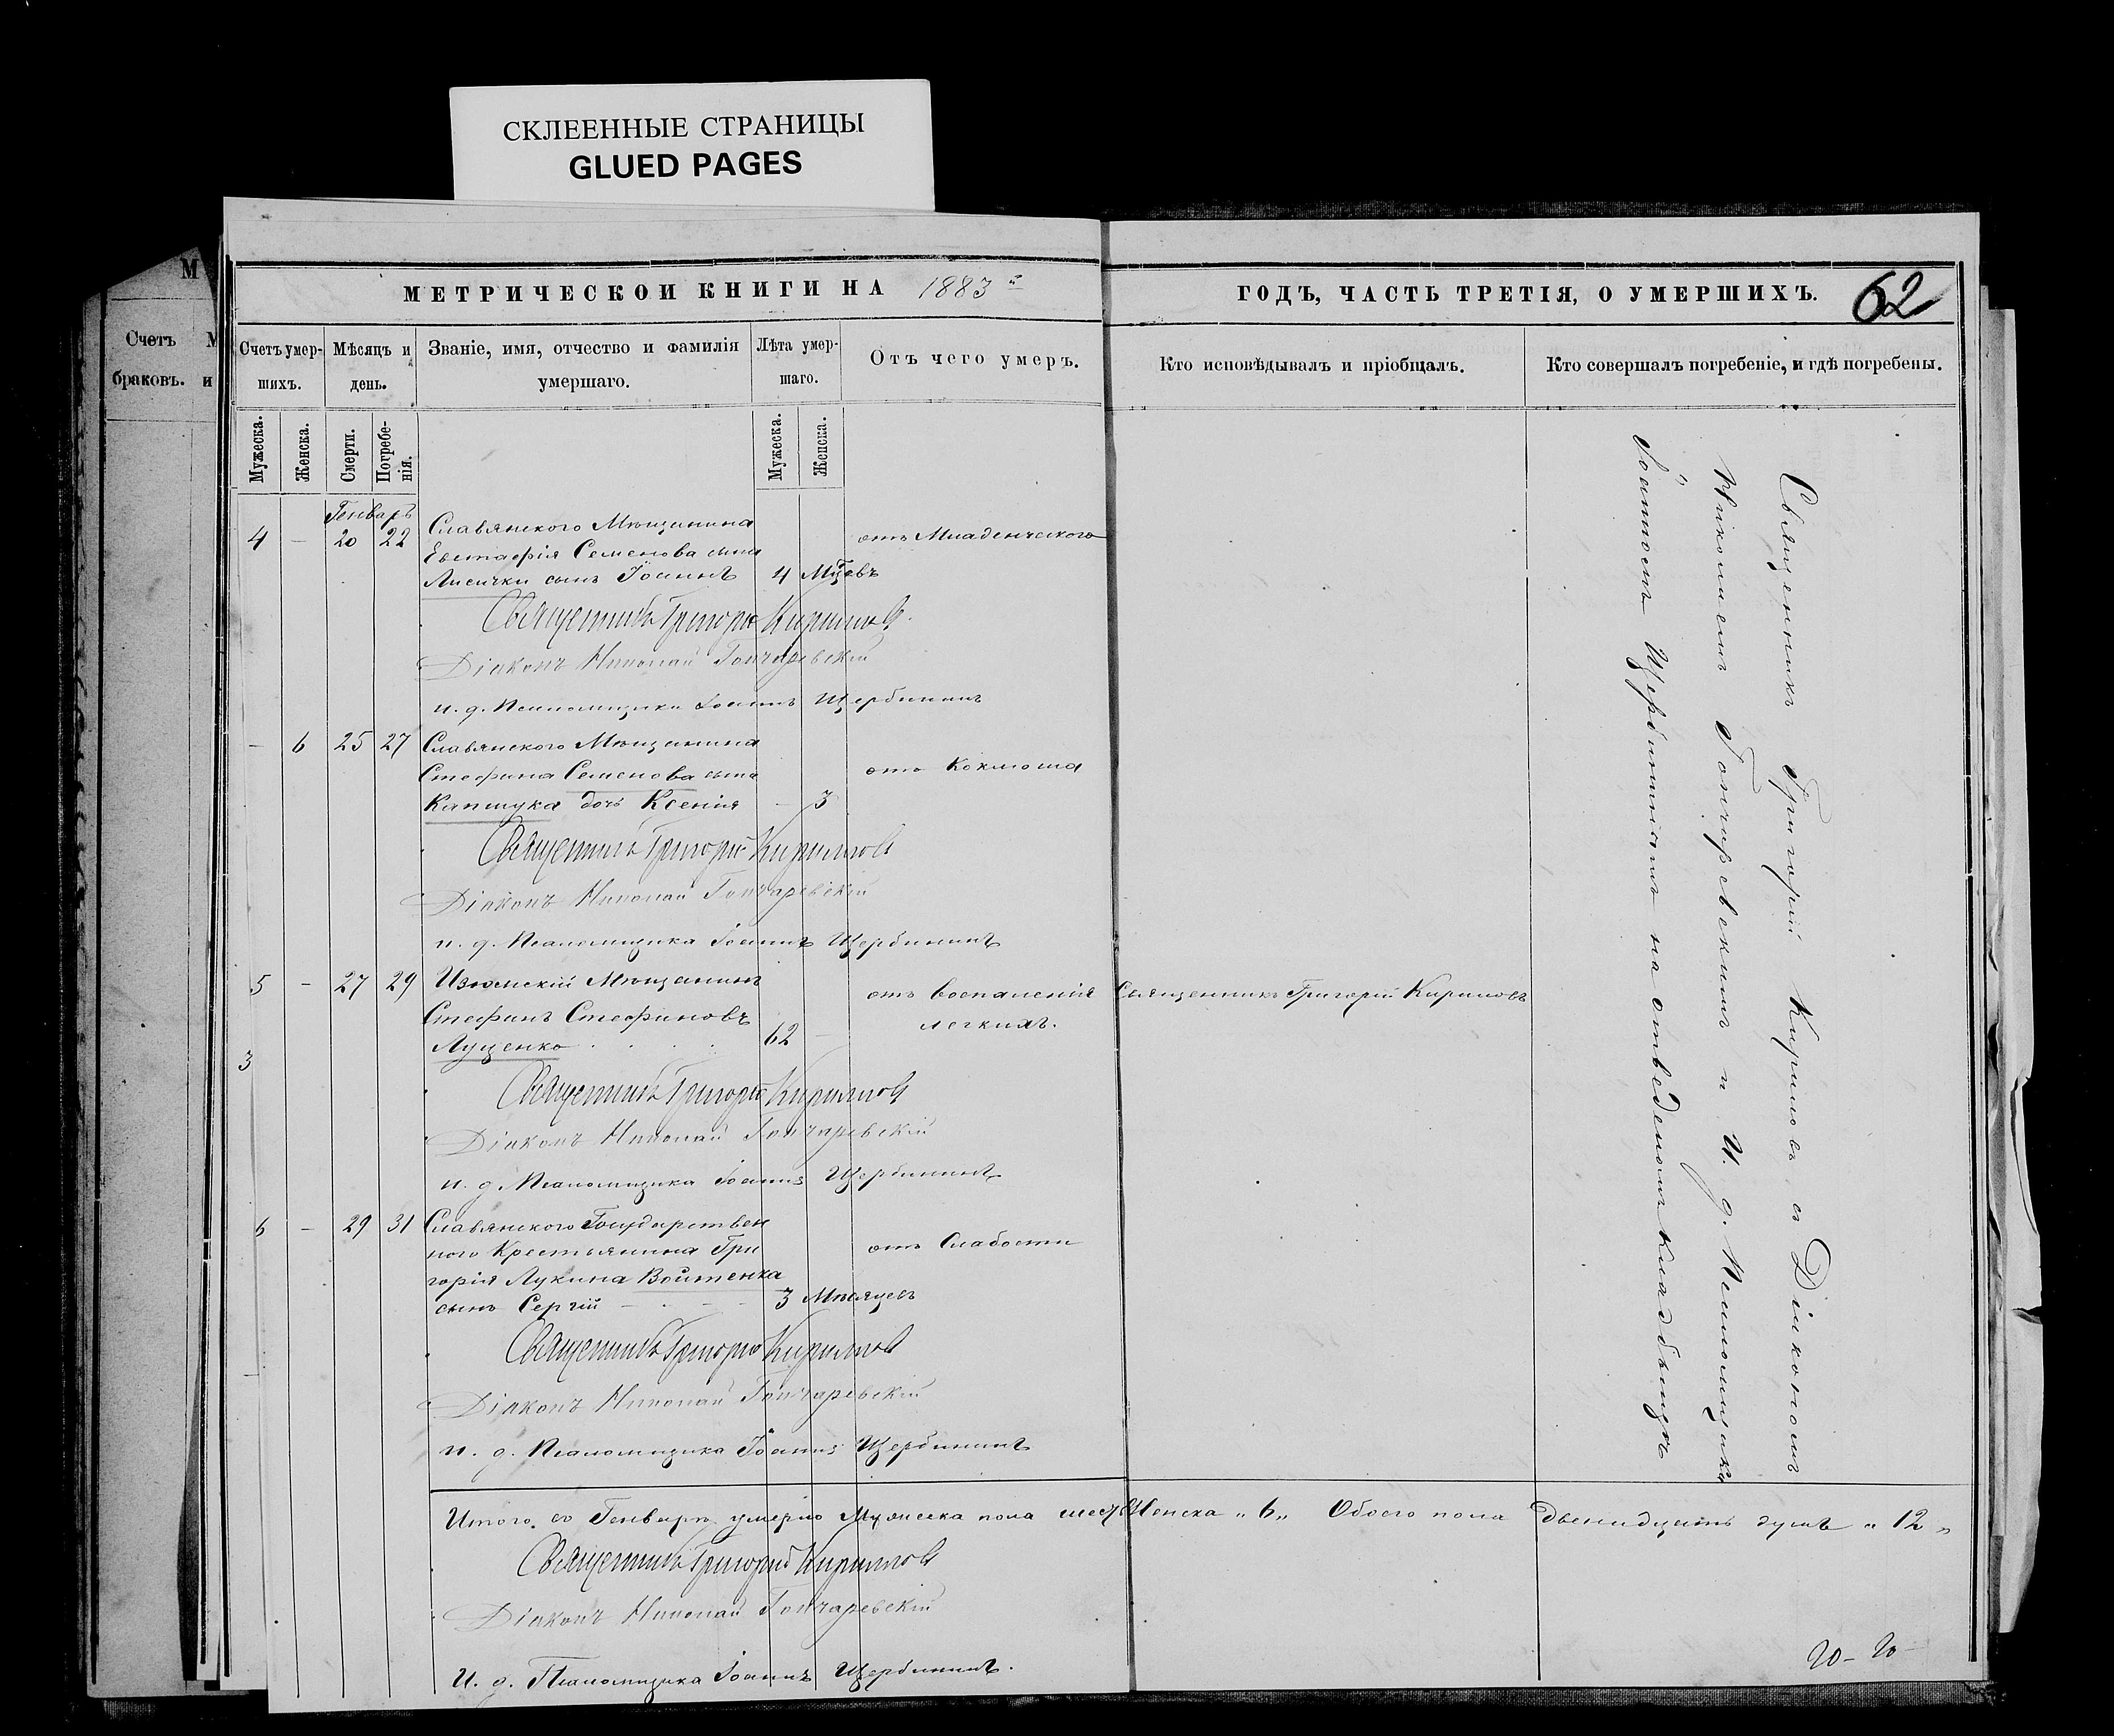 СКЛЕЕННЫЕ СТРАНИЦЫ
GLUED PAGES
М
Счетъ
браковъ.
М
и
МЕТРИЧЕСКОЙ КНИГИ НА 1883 й
ГОДЪ, ЧАСТЬ ТРЕТІЯ, О УМЕРШИХЪ.
62
Счетъ умер-
шихъ.
Мѣсяцъ и
день.
Званіе, имя, отчество и фамилія
умершаго.
Лѣта умер-
шаго.
Отъ чего умеръ.
Кто исповѣдывалъ и пріобщалъ.
Кто совершалъ погребеніе, и гдѣ погребены.
Мужеска.
Женска.
Смерти.
Погребе-
нія.
Мужеска.
Женска.
Генварь
4 – 20 22 Славянского Мѣщанина отъ Младенческого
Евстафія Семенова сына
Лисички сынъ Іоаннъ 4 Мцевъ
Священникъ Григорій Кириловъ
Діаконъ Николай Гончаревскій
и. д. Псаломщика Іоаннъ Щербининъ
– 6 25 27 Славянского Мѣщанина
Стефана Семенова сына отъ Коклюша
Капшука дочь Ксенія – 3
Священникъ Григорій Кириловъ
Діаконъ Николай Гончаревскій
и. д. Псаломщика Іоаннъ Щербининъ
5 – 27 29 Изюмскій Мѣщанинъ отъ воспаленія Священникъ Григорій Кириловъ
Стефанъ Стефановъ легкихъ.
Лущенко 62 –
3
Священникъ Григорій Кириловъ
Діаконъ Николай Гончаревскій
и. д. Псаломщика Іоаннъ Щербининъ
6 – 29 31 Славянского Государствен
ного Крестьянина Гри отъ Слабости
горія Лукина Войтенка
сынъ Сергій 3 Мѣсяцевъ
Священникъ Григорій Кириловъ
Діаконъ Николай Гончаревскій
и. д. Псаломщика Іоаннъ Щербининъ
Священникъ Григорій Кириловъ съ Діакономъ
Николаемъ Гончаревскимъ и И. д. Псаломщика
Іоанномъ Щербининымъ на отведеномъ кладбищѣ
Итого въ Генварѣ умерло Мужеска пола шесть Женска „ 6 „ Обоего пола двенадцать душъ „ 12 „
Священникъ Григорій Кириловъ
Діаконъ Николай Гончаревскій
И. д. Псаломщика Іоаннъ Щербининъ.